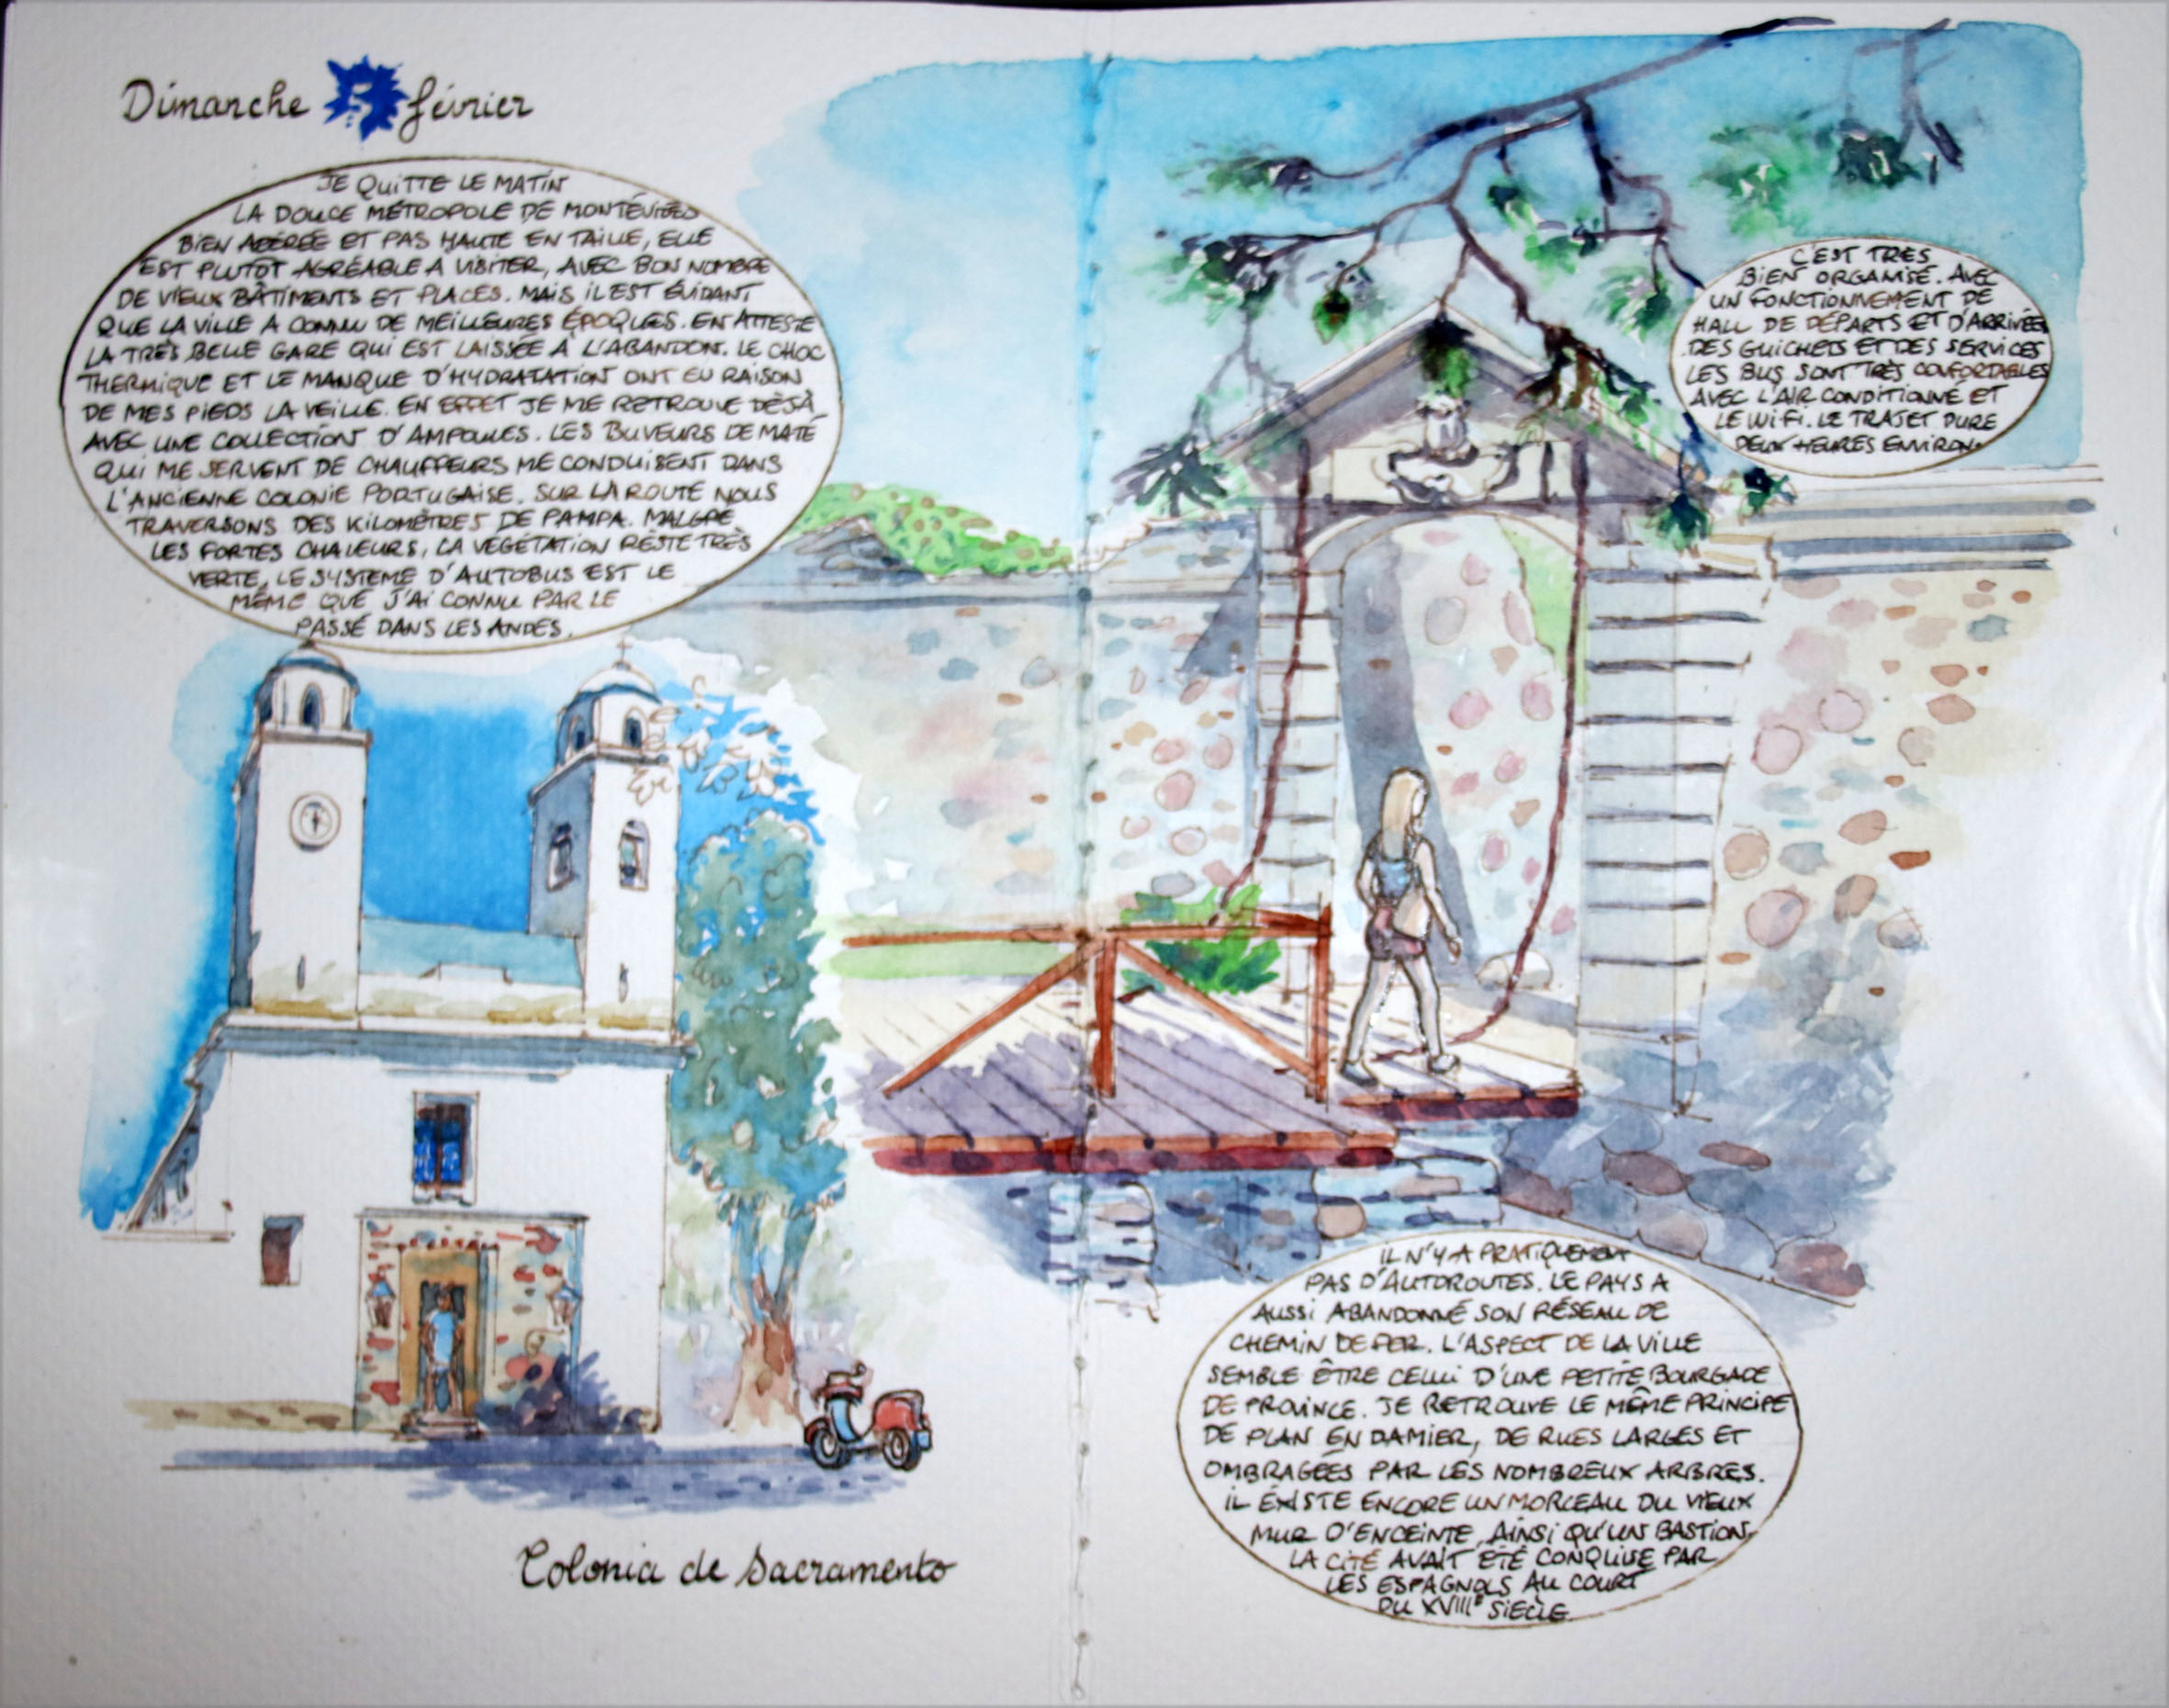 Dimanche 5 février
JE QUITTE LE MATIN
LA DOUCE MÉTROPOLE DE MONTÉVIDÉO
BIEN AÉRÉE ET PAS HAUTE EN TAILLE, ELLE
EST PLUTÔT AGRÉABLE A VISITER, AVEC BON NOMBRE
DE VIEUX BÂTIMENTS ET PLACES. MAIS IL EST ÉVIDANT
QUE LA VILLE A CONNU DE MEILLEURES ÉPOQUES. EN ATTESTE
LA TRÈS BELLE GARE QUI EST LAISSÉE À L'ABANDON. LE CHOC
THERMIQUE ET LE MANQUE D'HYDRATATION ONT EU RAISON
DE MES PIEDS LA VEILLE. EN EFFET JE ME RETROUVE DÉJÀ
AVEC UNE COLLECTION D'AMPOULES. LES BUVEURS DE MATÉ
QUI ME SERVENT DE CHAUFFEURS ME CONDUISENT DANS
L'ANCIENNE COLONIE PORTUGAISE. SUR LA ROUTE NOUS
TRAVERSONS DES KILOMÈTRES DE PAMPA. MALGRÉ
LES FORTES CHALEURS, LA VÉGÉTATION RESTE TRÈS
VERTE. LE SYSTEME D'AUTOBUS EST LE
MÊME QUE J'AI CONNU PAR LE
PASSÉ DANS LES ANDES.
C'EST TRES
BIEN ORGANISÉ. AVEC
UN FONCTIONNEMENT DE
HALL DE DÉPARTS ET D'ARRIVÉES
DES GUICHETS ET DES SERVICES
LES BUS SONT TRÈS CONFORTABLES
AVEC L'AIR CONDITIONNÉ ET
LE WIFI. LE TRAJET DURE
DEUX HEURES ENVIRON.
IL N'Y A PRATIQUEMENT
PAS D'AUTOROUTES. LE PAYS A
AUSSI ABANDONNÉ SON RÉSEAU DE
CHEMIN DE FER. L'ASPECT DE LA VILLE
SEMBLE ÊTRE CELUI D'UNE PETITE BOURGADE
DE PROVINCE. JE RETROUVE LE MÊME PRINCIPE
DE PLAN EN DAMIER, DE RUES LARGES ET
OMBRAGÉES PAR LES NOMBREUX ARBRES.
IL ÉXISTE ENCORE UN MORCEAU DU VIEUX
MUR D'ENCEINTE, AINSI QU'UN BASTION.
LA CITÉ AVAIT ÉTÉ CONQUISE PAR
LES ESPAGNOLS AU COURT
DU XVIIIE SIECLE.
Colonia de Sacramento